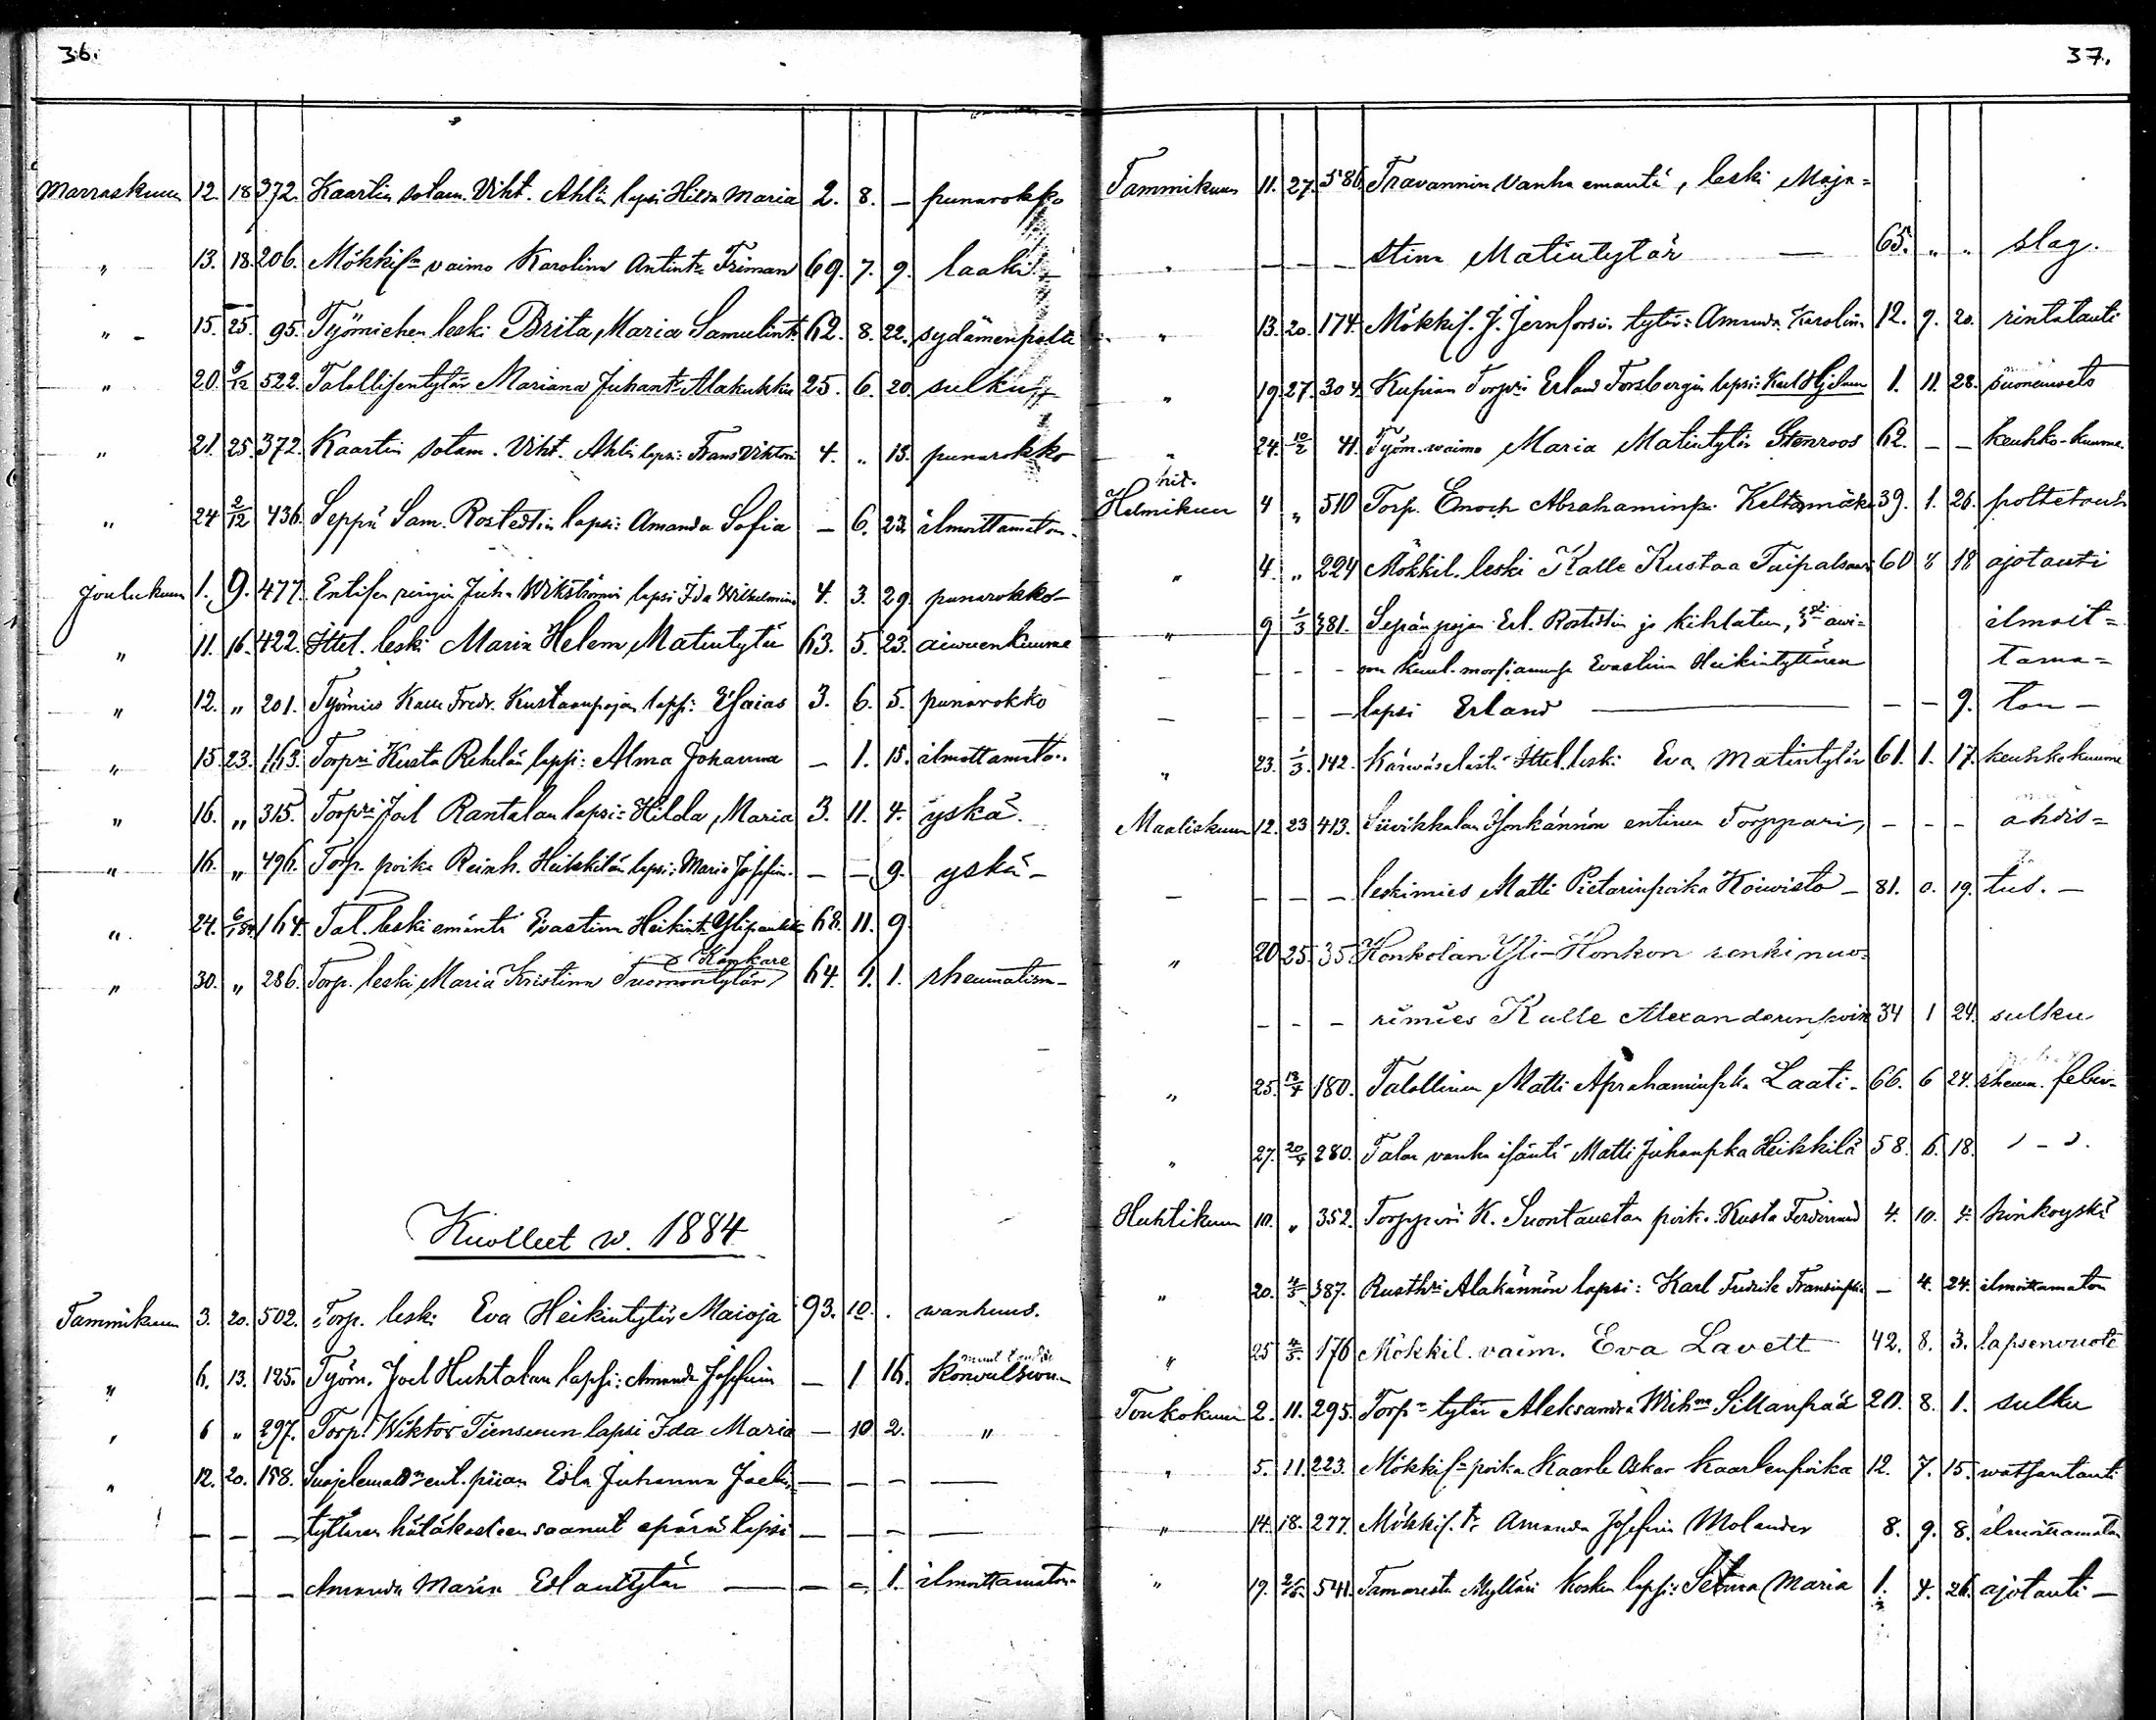 36.
Marraskuun 12. 18 372. Kaartin sotam. Viht. Ahlin lapsi Hilda Maria 2. 8. — punarokko
" 13. 18. 206. Mökkil:n vaimo Karolina Antint:r Friman 69. 7. 9. laaki
" 15. 25. 95. Työmiehen leski Brita Maria Samulint:r 62. 8. 22. sydämenpolte
" 20. 9/12 522. Talollisentytär Mariana Juhant:r Alakukku 25. 6. 20. sulku
" 21. 25. 372. Kaartin sotam. Viht. Ahlin lapsi: Frans Viktori 4. " 15. punarokko
" 24 2/12 436. Seppä Sam. Rostedtin lapsi: Amanda Sofia — 6. 23. ilmoittamaton
Joulukuun 1. 9. 477. Entisen rengin Juha Wikströmin lapsi Ida Wilhelmina 4. 3. 29. punarokko
" 11. 16. 422. Ittel. leski Maria Helena Matintytär 63. 5. 23. aiwuenkuume
" 12. " 201. Työmies Kalle Fredr. Kustaanpojan lapsi: Esaias 3. 6. 5. punarokko
" 15. 23. 163. Torp:ri Kusta Rehelän lapsi: Alma Johanna — 1. 15. ilmottamaton
" 16. " 315. Torp:ri Joel Rantalan lapsi: Hilda Maria 3. 11. 4. yskä.
" 16. " 496. Torp. poika Reinh. Heikkilän lapsi: Maria Josefin. — — 9. yskä —
" 24. 6/1 84. 164. Tal. leski emäntä Evastina Heikint:r Ylipaukku 68. 11. 9
Kankare
" 30. " 286. Torp. leski Maria Kristina Tuomontytär 64. 1. 1. rheumatism
Kuolleet w. 1884
Tammikuun 3. 20. 502. Torp. leski Eva Heikintytär Maioja 93. 10. . wanhuus.
" 6. 13. 125. Työm. Joel Huhtalan lapsi: Amanda Josefiin — 1 16. Konvulsion
" 6 " 297. Torp. Wiktor Tiensuun lapsi Ida Maria — 10 2. "
" 12. 20. 158. Suojelemad:n ent. piian Edla Juhanna Joelin — — — —
— — — tyttären hätäkasteen saanut äpärä lapsi — — — —
— — — Amanda Maria Edlantytär — — — 1. ilmoittamaton
37.
Tammikuun 11. 27. 586 Travannin Vanha emäntä, leski Maja=
" — — — stina Matintytär — 65. " " slag.
" 13. 20. 174. Mökkil. J. Jernforsin tytär: Amanda Karolina 12. 9. 20. rintatauti
" 19. 27. 304. Kupian Torp:ri Erland Forsbergin lapsi: Karl Hjelmer 1. 11. 28. suonenveto
" 24. 10/2 41. Työm. waimo Maria Matintytär Stenroos 62. — — keuhko-kuume.
Helmikuun 4 " 510 Torp. Enoch Abrahaminp. Keltamäki 39. 1. 26. poltetauti
" 4. " 224 Mökkil. leski Kalle Kustaa Taipalsaari 60 8 18 ajotauti
" 9 1/3 381. Sepän pojan Erl. Rostedtin ja kihlatun, 3:sti awi= ilmoit=
— — — — on kuul. morsiamensa Evastina Heikintyttären tama=
— — — — lapsi Erland — — — 9. ton —
" 23. 1/3. 142. Kärwäselästä Ittel. leski Eva Matintytär 61. 1. 17. keuhkokuume
Maaliskuun 12. 23 413. Siivikkalan Isonkännön entinen Torppari, — — — ahdis=
— — — — leskimies Matti Pietarinpoika Koiwisto — 81. 0. 19. tus. —
" 20 25. 35. Honkolan Yli-Honkon renki nuo=
— — — rimies Kalle Alexanderinpoik. 34 1 24. sulku
" 25. 13/4 180. Talollinen Matti Aprahaminpka Laati. 66. 6 24. rheum. feber
" 27. 20/4 280. Talon vanha isäntä Matti Juhanpka Heikkilä 58. 6. 18. " — "
Huhtikuun 10. " 352. Torppari K. Suontaustan poik. Kusta Ferdinand 4. 10. 4. hinkuyskä
" 20. 4/5 387. Rusth:ri Alakännön lapsi: Karl Fredrik Fransinpka — 4. 24. ilmoittamaton
" 25 4/5. 176 Mökkil. vaim. Eva Lavett 42. 8. 3. lapsenvuote
Toukokuun 2. 11. 295. Torp:n tytär Aleksandra Wilh:na Sillanpää 20. 8. 1. sulku
" 5. 11. 223. Mökkil:n poika Kaarle Oskar Kaarlenpoika 12. 7. 15. watsantauti
" 14. 18. 277. Mökkil. t:r Amanda Josefina Molander 8. 9. 8. ilmoittamaton
" 19. 2/6. 541. Tamareste Mylläri Kosken lapsi: Selma Maria 1. 4. 26. ajotauti —